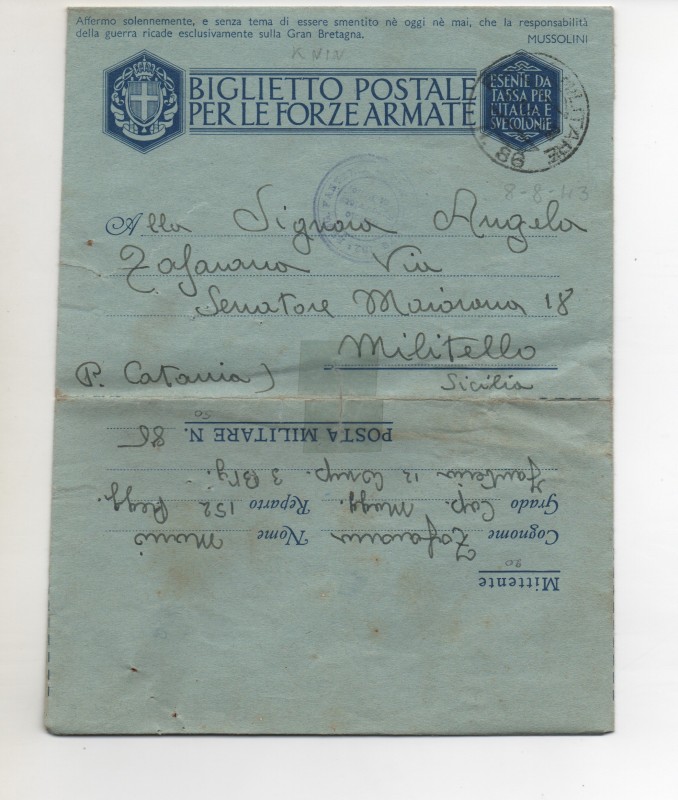 Affermo solennemente, e senza tema di essere smentito nè oggi nè mai, che la responsabilità
della guerra ricade esclusivamente sulla Gran Bretagna.
MUSSOLINI
KNIN
BIGLIETTO POSTALE
PER LE FORZE ARMATE
ESENTE DA
TASSA PER
L'ITALIA E
SVE COLONIE
MILITARE
86
8-8-43
Alla Signora Angela
Zafarana Via
Senatore Maiorana 18
Militello
(P. Catania)
Sicilia
Mittente
20
Cognome Zafarana Nome Mario
Grado Cap. Magg. Reparto 152 Regg.
Fanteria 12 Comp. 3 Btg.
POSTA MILITARE N. 86
50